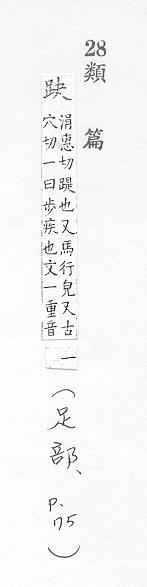 28
類篇
趹
涓惠切踶也又馬行皃又古
穴切一曰步疾也文一重音
一
(足部、
p.
75)